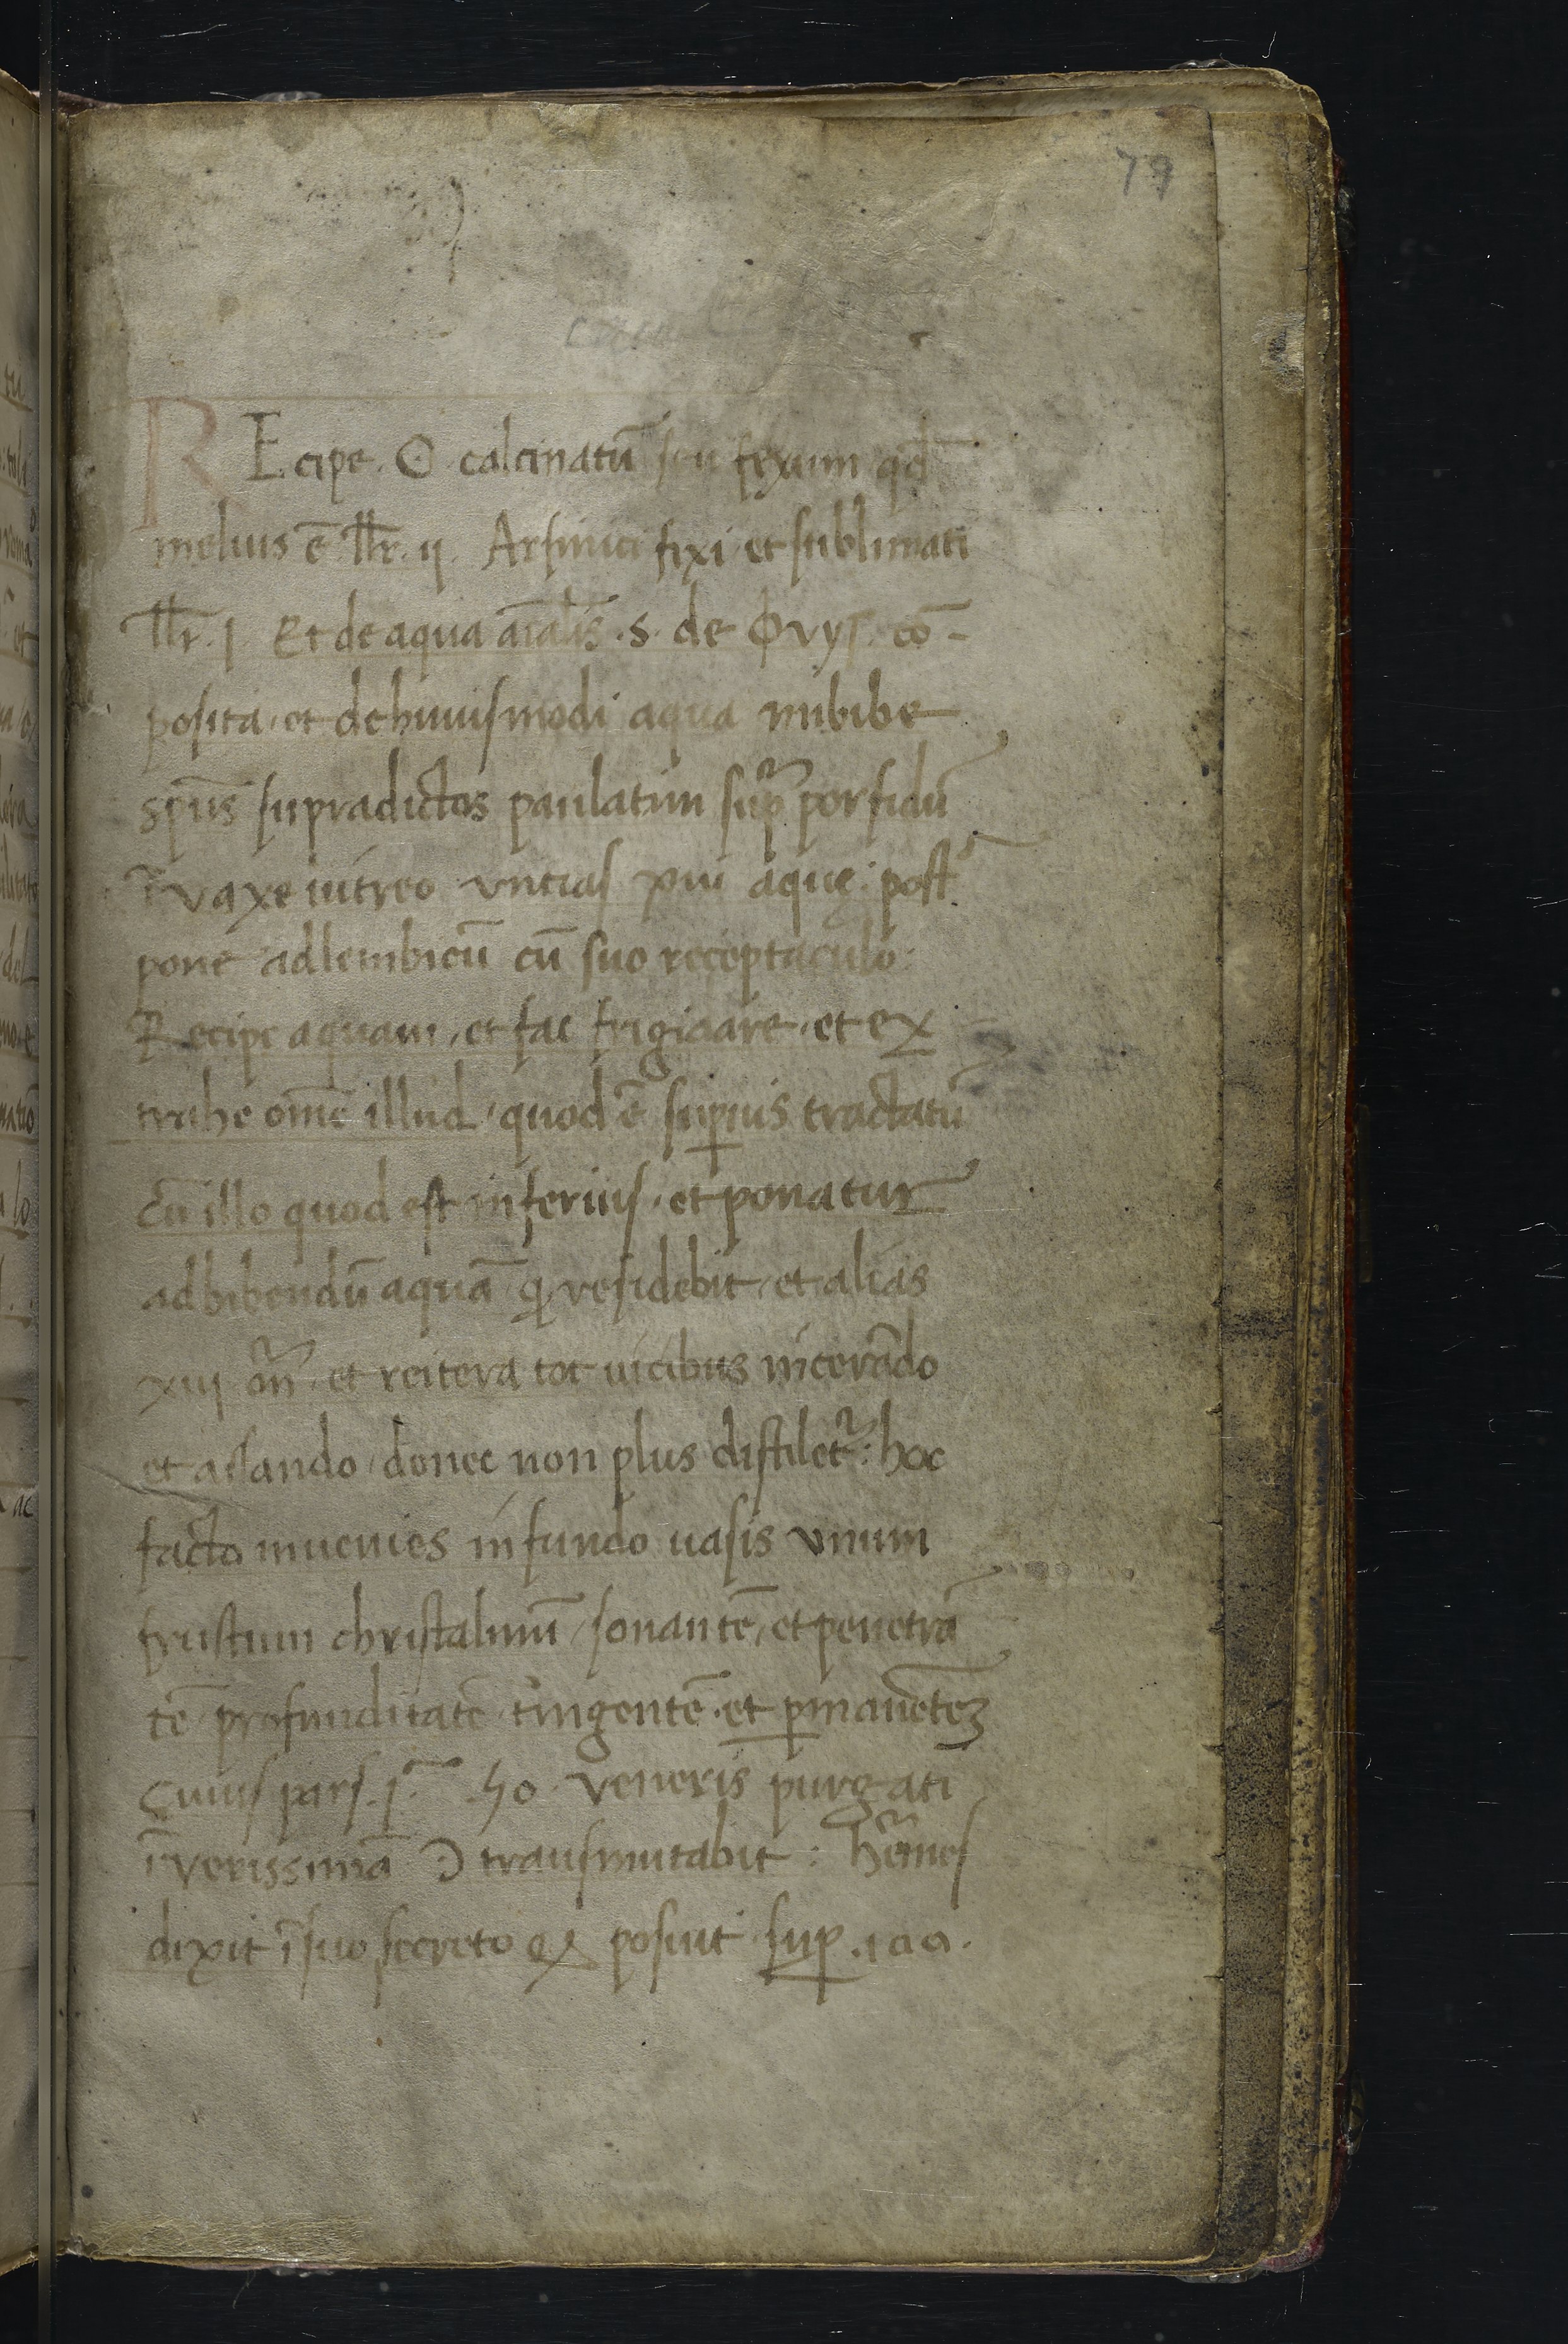 79
REcipe. ☉ calcinatū seu fixum qd̄
melius ē llr̄. ij. Arsinici fixi et sublimati
llr̄. j. Et de aqua aīalis .s. de Φvys. cō-
posita, et dehuiusmodi aqua imbibe
spūs supradictos paulatim sup̄ porfidū
ī vaxe iutreo vntias xiii aquę: post̄.
pone adlembicū cū suo receptaculo.
Recipe aquam, et fac frigidare, et ex
trahe om̄e illud, quod ē sup̱ius tractatū
cū illo quod est inferius, et ponatur
adbibendū aquā q̱ residebit, et alias
xiij on̄. et reitera tot uicibus incerādo
et asando, donec non plus distilet̄: hoc
facto inuenies in fundo uasis vnum
frustum christalinū, sonantē, et penetrā
tē profunditatē tingentē. et ꝑmanētēʒ
Cuius pars. jᵃ. 50 veneris purgati
ī verissimā ☽ transmutabit: hērmes
dixit ī suo secreto ex posuit suꝑ .100.